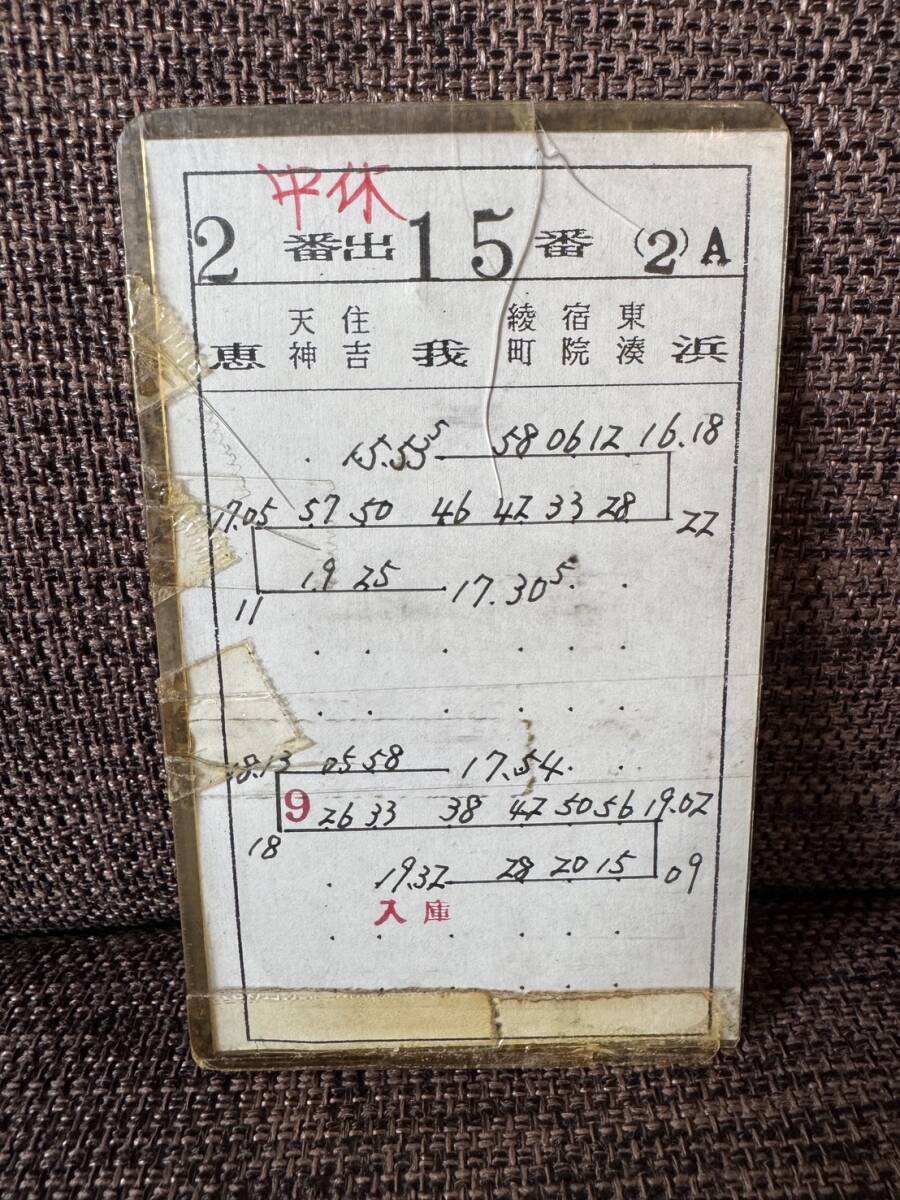 中休
2 番出 15 番 (2) A
恵 天神 住吉 我 綾町 宿院 東湊 浜
15.53⁵ 58 06 12 16.18
17.05 57 50 46 42 33 28 22
11 19 25 17.30⁵
18.13 05 58 17.54
9 26 33 38 47 50 56 19.02
18
19.32 28 20 15 09
入庫